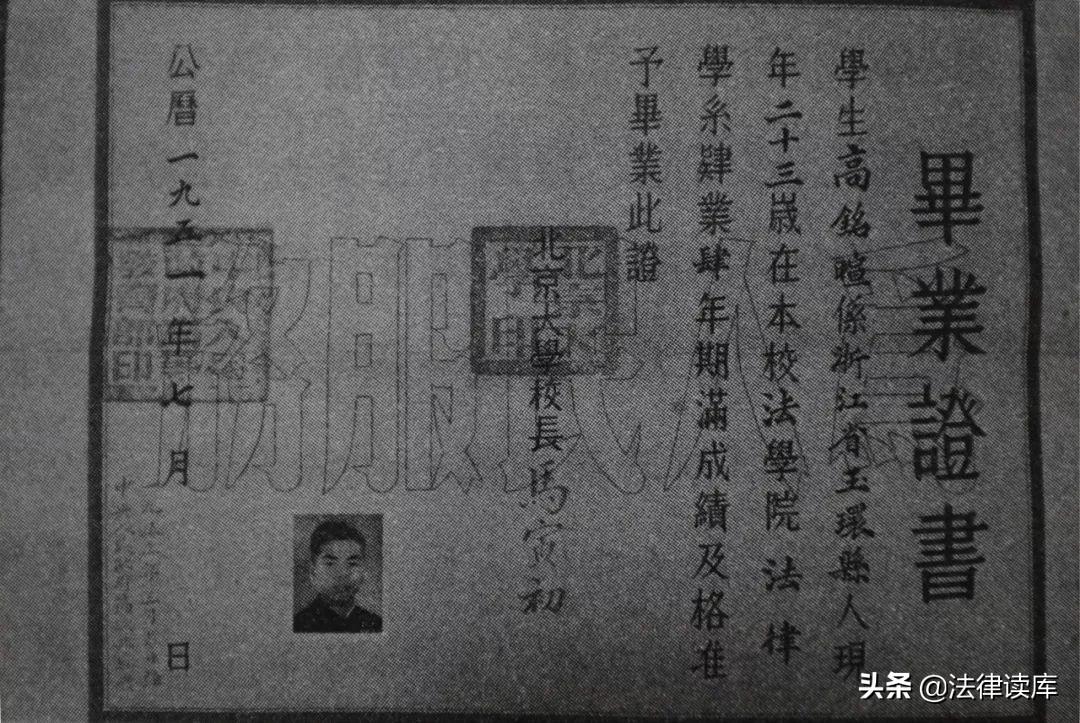 畢業證書
學生高銘暄係浙江省玉環縣人現
年二十三歲在本校法學院法律
學系肄業肆年期滿成績及格准
予畢業此證
北京大學校長馬寅初
北京大學印
公曆一九五一年七月 日
教育部印
为人民服務
头条 @法律读库